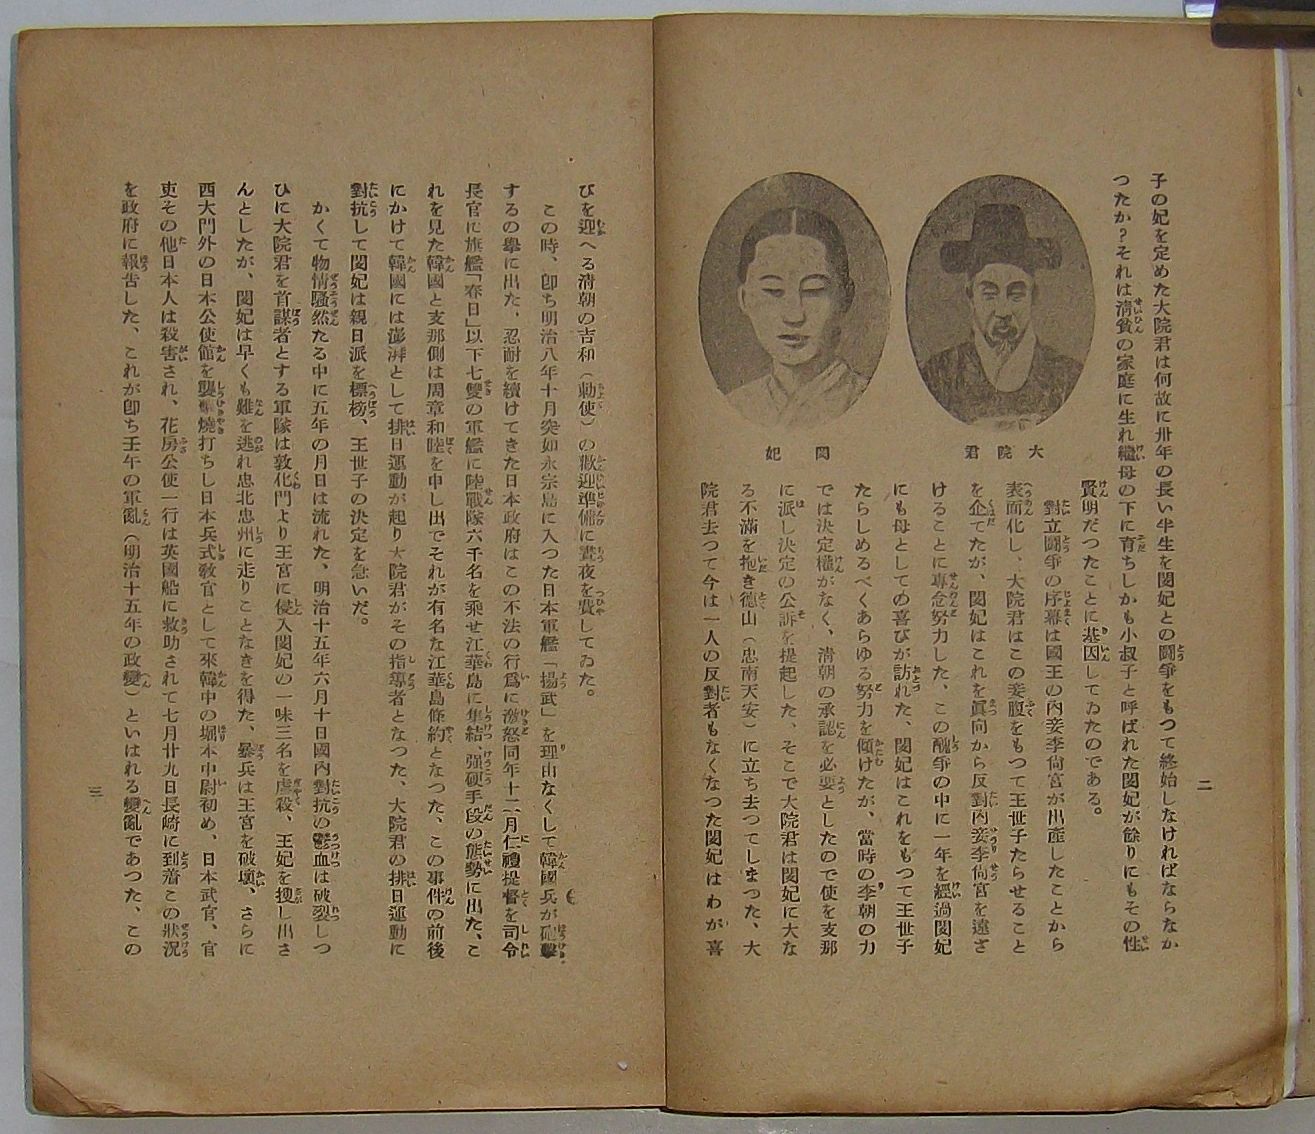 二
子の妃を定めた大院君は何故に卅年の長い半生を閔妃との鬪爭をもつて終始しなければならなか
つたか？それは淸貧の家庭に生れ繼母の下に育ちしかも小叔子と呼ばれた閔妃が餘りにもその性
賢明だつたことに基因してゐたのである。
對立鬪爭の序幕は國王の內妾李尙宮が出產したことから
表面化し、大院君はこの妾腹をもつて王世子たらせること
を企てたが、閔妃はこれを眞向から反對內妾李尙宮を遠ざ
けることに專念努力した、この醜爭の中に一年を經過閔妃
にも母としての喜びが訪れた、閔妃はこれをもつて王世子
たらしめるべくあらゆる努力を傾けたが、當時の李朝の力
では決定權がなく、淸朝の承認を必要としたので使を支那
に派し決定の公訴を提起した、そこで大院君は閔妃に大な
る不滿を抱き德山（忠南天安）に立ち去つてしまつた、大
院君去つて今は一人の反對者もなくなつた閔妃はわが喜
大院君
閔妃
びを迎へる淸朝の吉和（勅使）の歡迎準備に晝夜を費してゐた。
この時、卽ち明治八年十月突如永宗島に入つた日本軍艦「揚武」を理由なくして韓國兵が砲擊
するの擧に出た、忍耐を續けてきた日本政府はこの不法の行爲に激怒同年十二月仁禮提督を司令
長官に旗艦「春日」以下七隻の軍艦に陸戰隊六千名を乘せ江華島に集結、强硬手段の態勢に出た、こ
れを見た韓國と支那側は周章和睦を申し出でそれが有名な江華島條約となつた、この事件の前後
にかけて韓國には澎湃として排日運動が起り大院君がその指導者となつた、大院君の排日運動に
對抗して閔妃は親日派を標榜、王世子の決定を急いだ。
かくて物情騷然たる中に五年の月日は流れた、明治十五年六月十日國內對抗の鬱血は破裂しつ
ひに大院君を首謀者とする軍隊は敦化門より王宮に侵入閔妃の一味三名を虐殺、王妃を搜し出さ
んとしたが、閔妃は早くも難を逃れ忠北忠州に走りことなきを得た、暴兵は王宮を破壞、さらに
西大門外の日本公使館を襲擊燒打ちし日本兵式敎官として來韓中の堀本中尉初め、日本武官、官
吏その他日本人は殺害され、花房公使一行は英國船に救助されて七月廿九日長崎に到着この狀況
を政府に報告した、これが卽ち壬午の軍亂（明治十五年の政變）といはれる變亂であつた、この
三